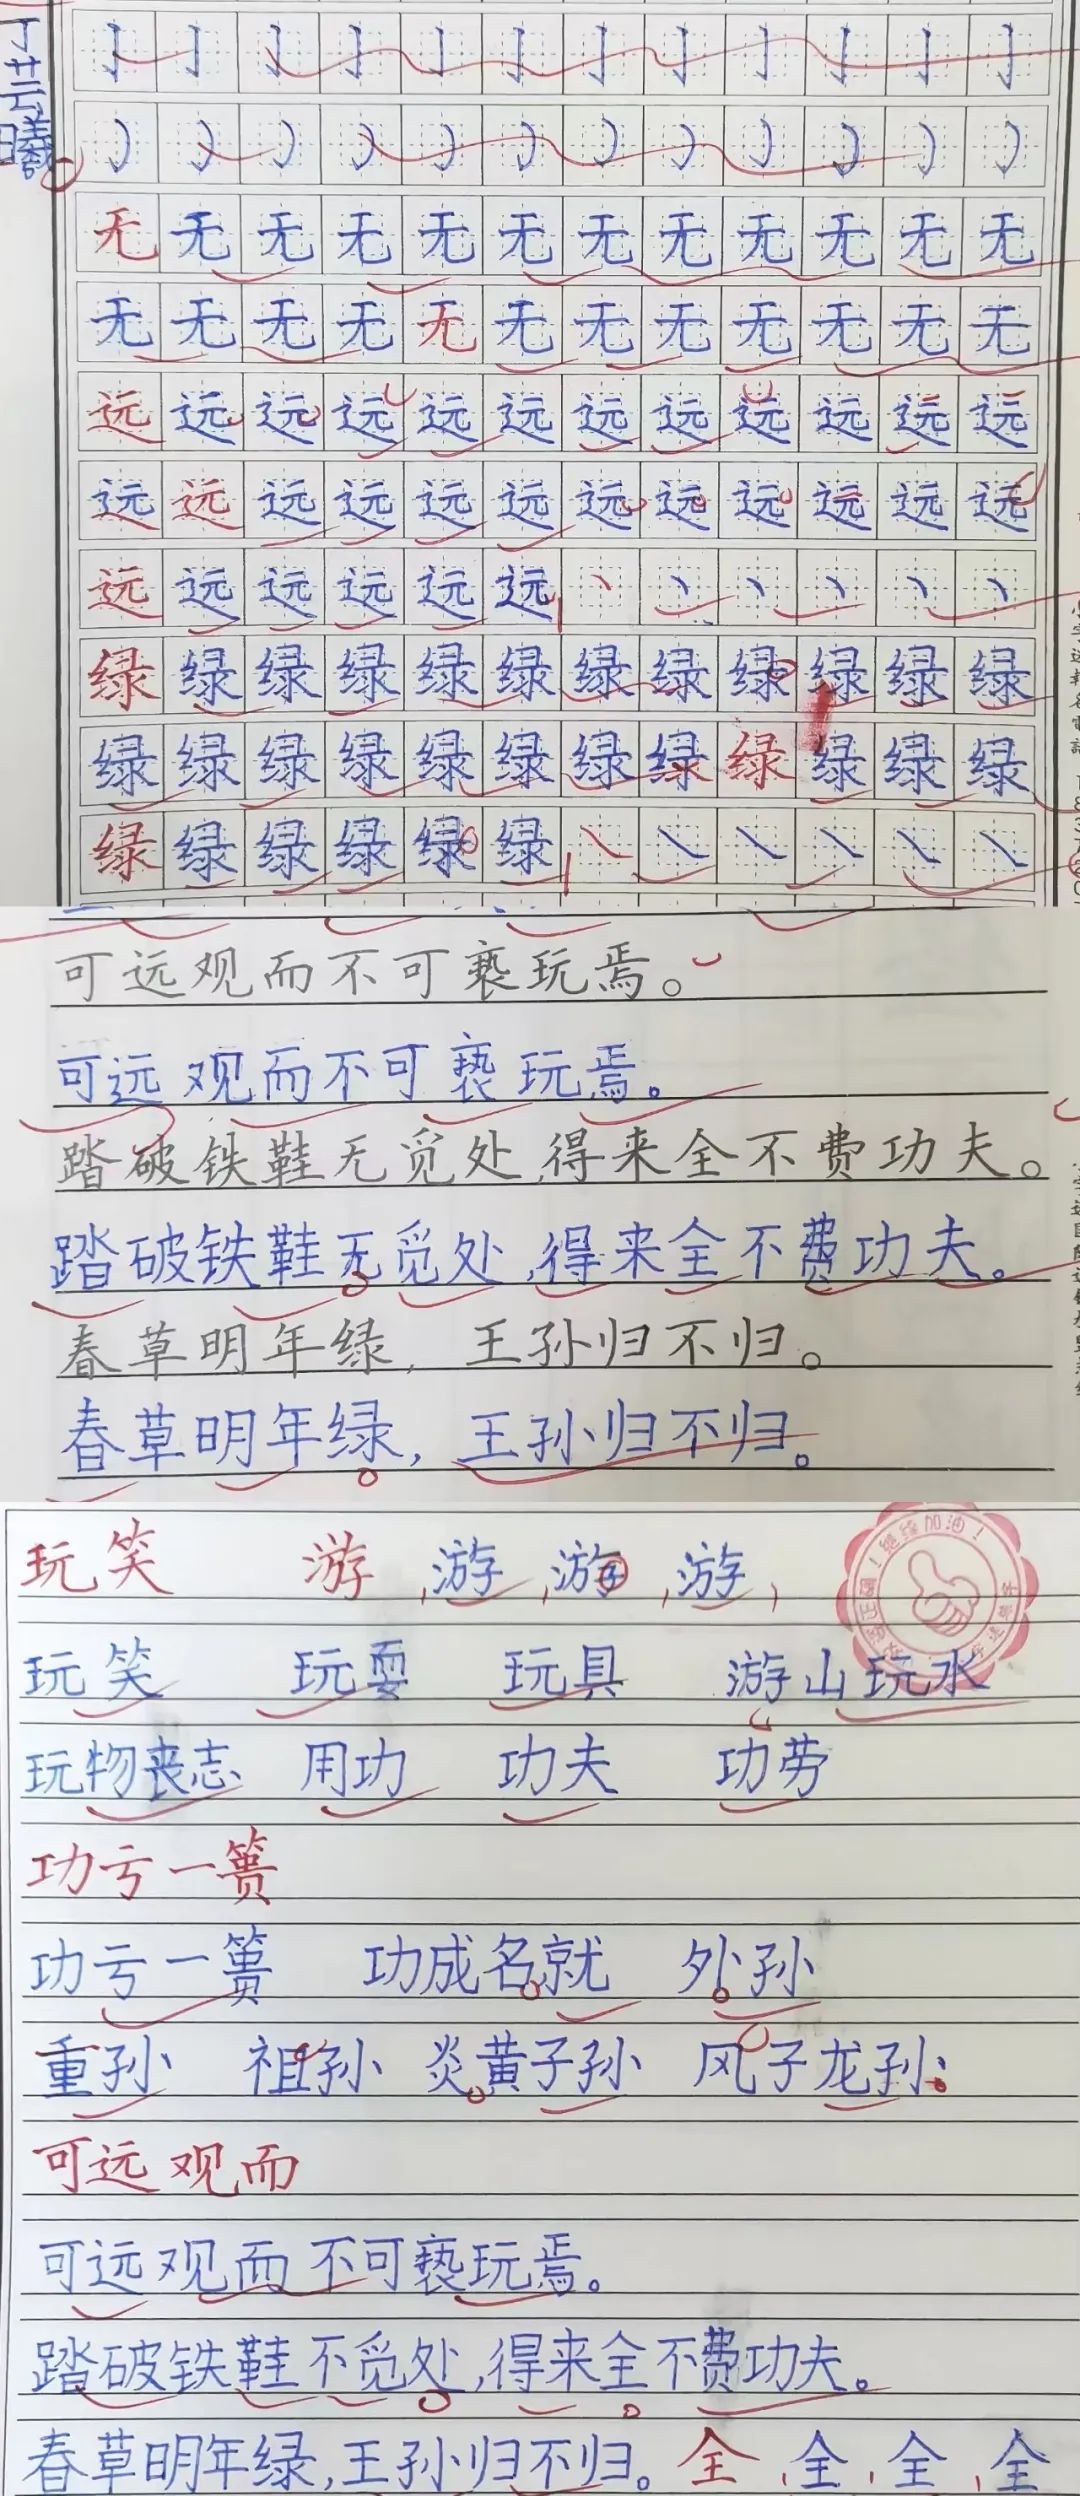 丁芸曦
无无无无无无无无无无无无
无无无无无无无无无无无无
远远远远远远远远远远远远
远远远远远远远远远远远远
远远远远远远
绿绿绿绿绿绿绿绿绿绿绿绿
绿绿绿绿绿绿绿绿绿绿绿绿
绿绿绿绿绿绿
可远观而不可亵玩焉。
可远观而不可亵玩焉。
踏破铁鞋无觅处,得来全不费功夫。
踏破铁鞋无觅处,得来全不费功夫。
春草明年绿,王孙归不归。
春草明年绿,王孙归不归。
玩笑 游 游 游 游
继续加油！
玩笑 玩耍 玩具 游山玩水
玩物丧志 用功 功夫 功劳
功亏一篑
功亏一篑 功成名就 外孙
重孙 祖孙 炎黄子孙 风子龙孙
可远观而
可远观而不可亵玩焉。
踏破铁鞋不觅处,得来全不费功夫。
春草明年绿,王孙归不归。全 全 全 全